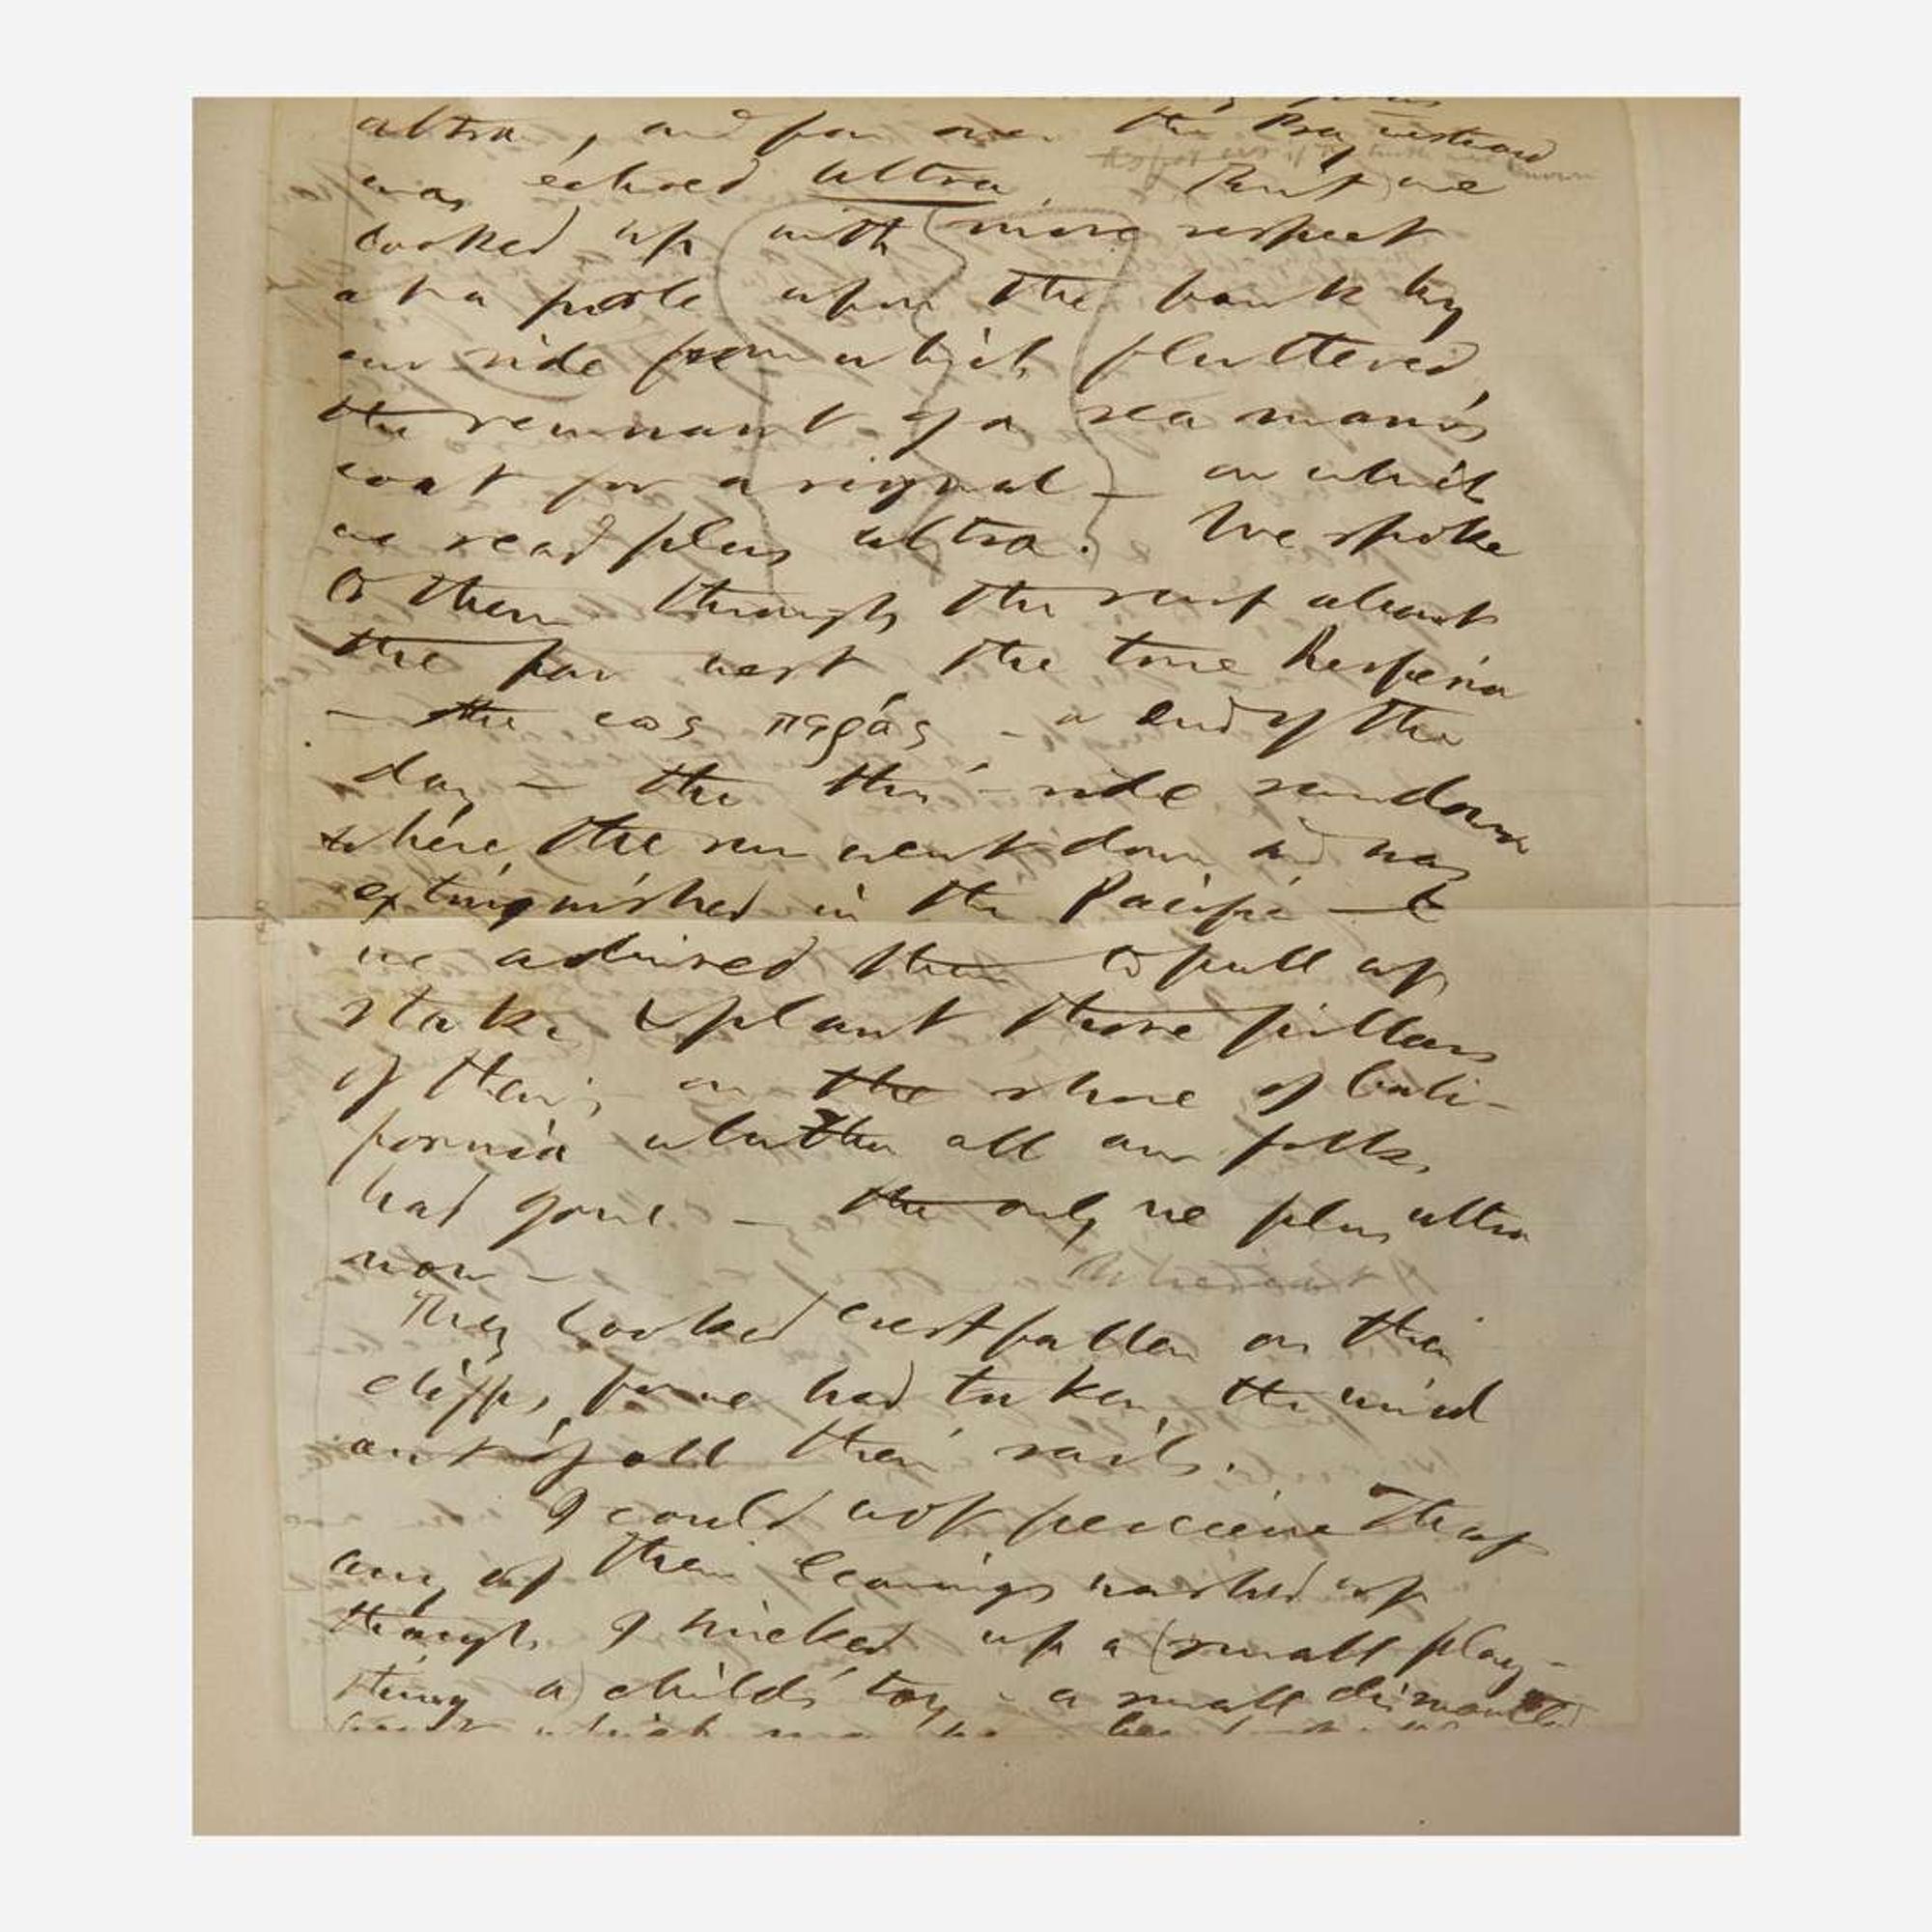 ultra, and far over the Bay westward
was echoed ultra But we
looked up with more respect
at a pole upon the bank by
our side from which fluttered,
the remnant of a sea man's
coat for a signal — on which
we read plus ultra. We spoke
to them through the surf about
the far west the true Hesperia
— the εως περας - a end of the
day — the this-side sundown
where, the sun went down and was
extinguished in the Pacific — &
we advised them to pull up
stake & plant those pillars
of theirs on the shore of Cali-
fornia whither all our folks
had gone — the only ne plus ultra
now —
Whereat
They looked crestfallen on their
cliffs, for we had taken the wind
out of all their sails.
I could not perceive that
any of their leavings washed up
though I picked up a (small play-
thing a) child's toy - a small dismantled
boat which may be